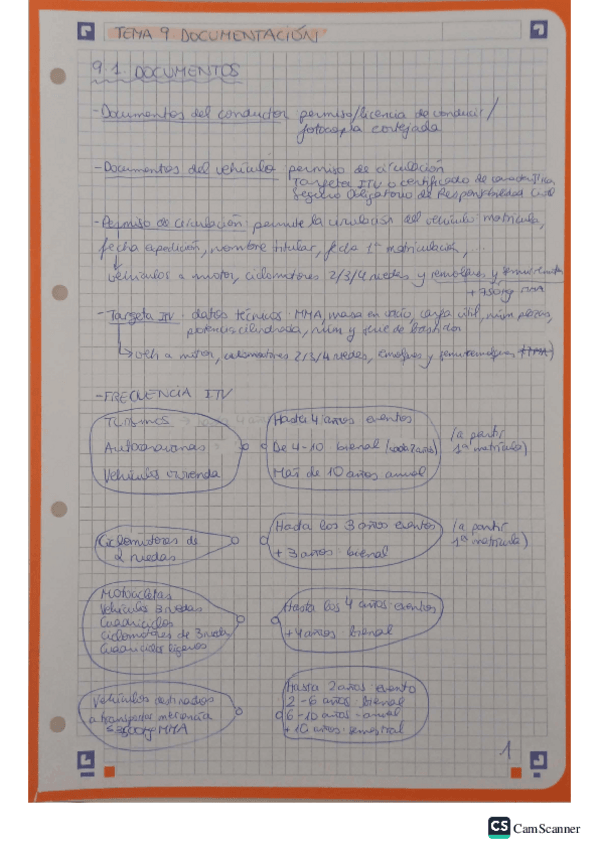 TEMA 9 DOCUMENTACIÓN
9.1. DOCUMENTOS
- Documentos del conductor permiso/licencia de conducir/
fotocopia cotejada
- Documentos del vehículo permiso de circulación
Targeta ITV o certificado de característica
Seguro Obligatorio de Responsabilidad Civil
- Permiso de circulación: permite la circulación del vehículo: matrícula,
fecha expedición, nombre titular, fecha 1ª matriculación, ...
vehículos a motor, ciclomotores 2/3/4 ruedas y remolques y semirremolq
+750kg MMA
- Targeta ITV: datos técnicos: MMA, masa en vacío, carga útil, núm plazas,
potencia cilindrada, núm y serie de bastidor
veh a motor, ciclomotores 2/3/4 ruedas, remolques y semirremolques
- FRECUENCIA ITV
Turismos
Autocaravanas
Vehículos vivienda
Hasta 4 años exentos
De 4-10 bienal (cada 2 años)
Más de 10 años anual
(a partir
1ª matrícula)
Ciclomotores de
2 ruedas
Hasta los 3 años exentos
+ 3 años · bienal
(a partir
1ª matrícula)
Motocicletas
Vehículos 3 ruedas
Cuadriciclos
Ciclomotores de 3 rueda
Cuadriciclos ligeros
Hasta los 4 años exentos
+4 años · bienal
Vehículos destinados
a transportar mercancía
≤3500kg MMA
Hasta 2 años exento
2 - 6 años · bienal
6 - 10 años - anual
+ 10 años · semestral
1
CS CamScanner